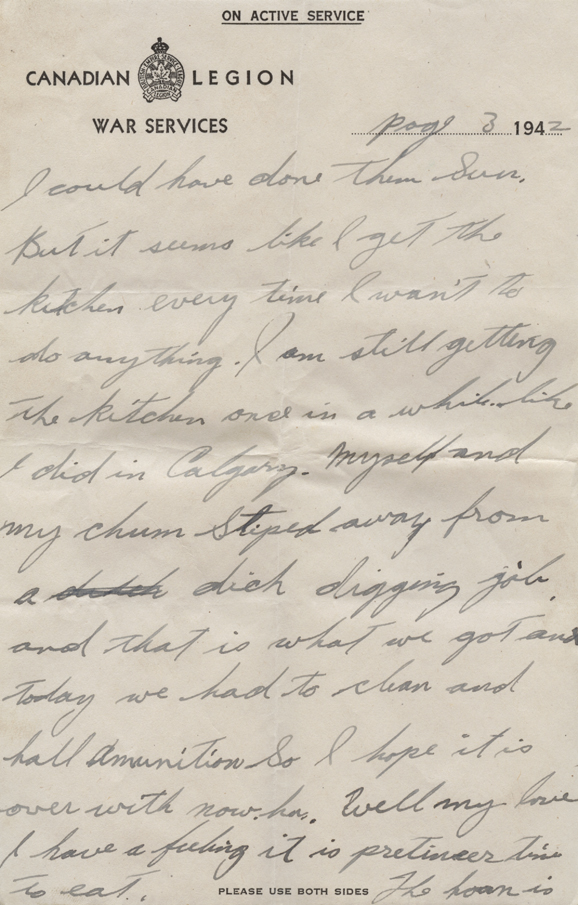 ON ACTIVE SERVICE
CANADIAN LEGION
WAR SERVICES
page 3 1942
I could have done them Sun.
But it seems like I get the
kitchen every time I want to
do anything. I am still getting
the kitchen once in a while like
I did in Calgary. Myself and
my chum Stiped away from
a dich digging job,
and that is what we got and
today we had to clean and
hall Amunition So I hope it is
over with now. ha. Well my love
I have a feeling it is pretineer time
to eat. The horn is
PLEASE USE BOTH SIDES